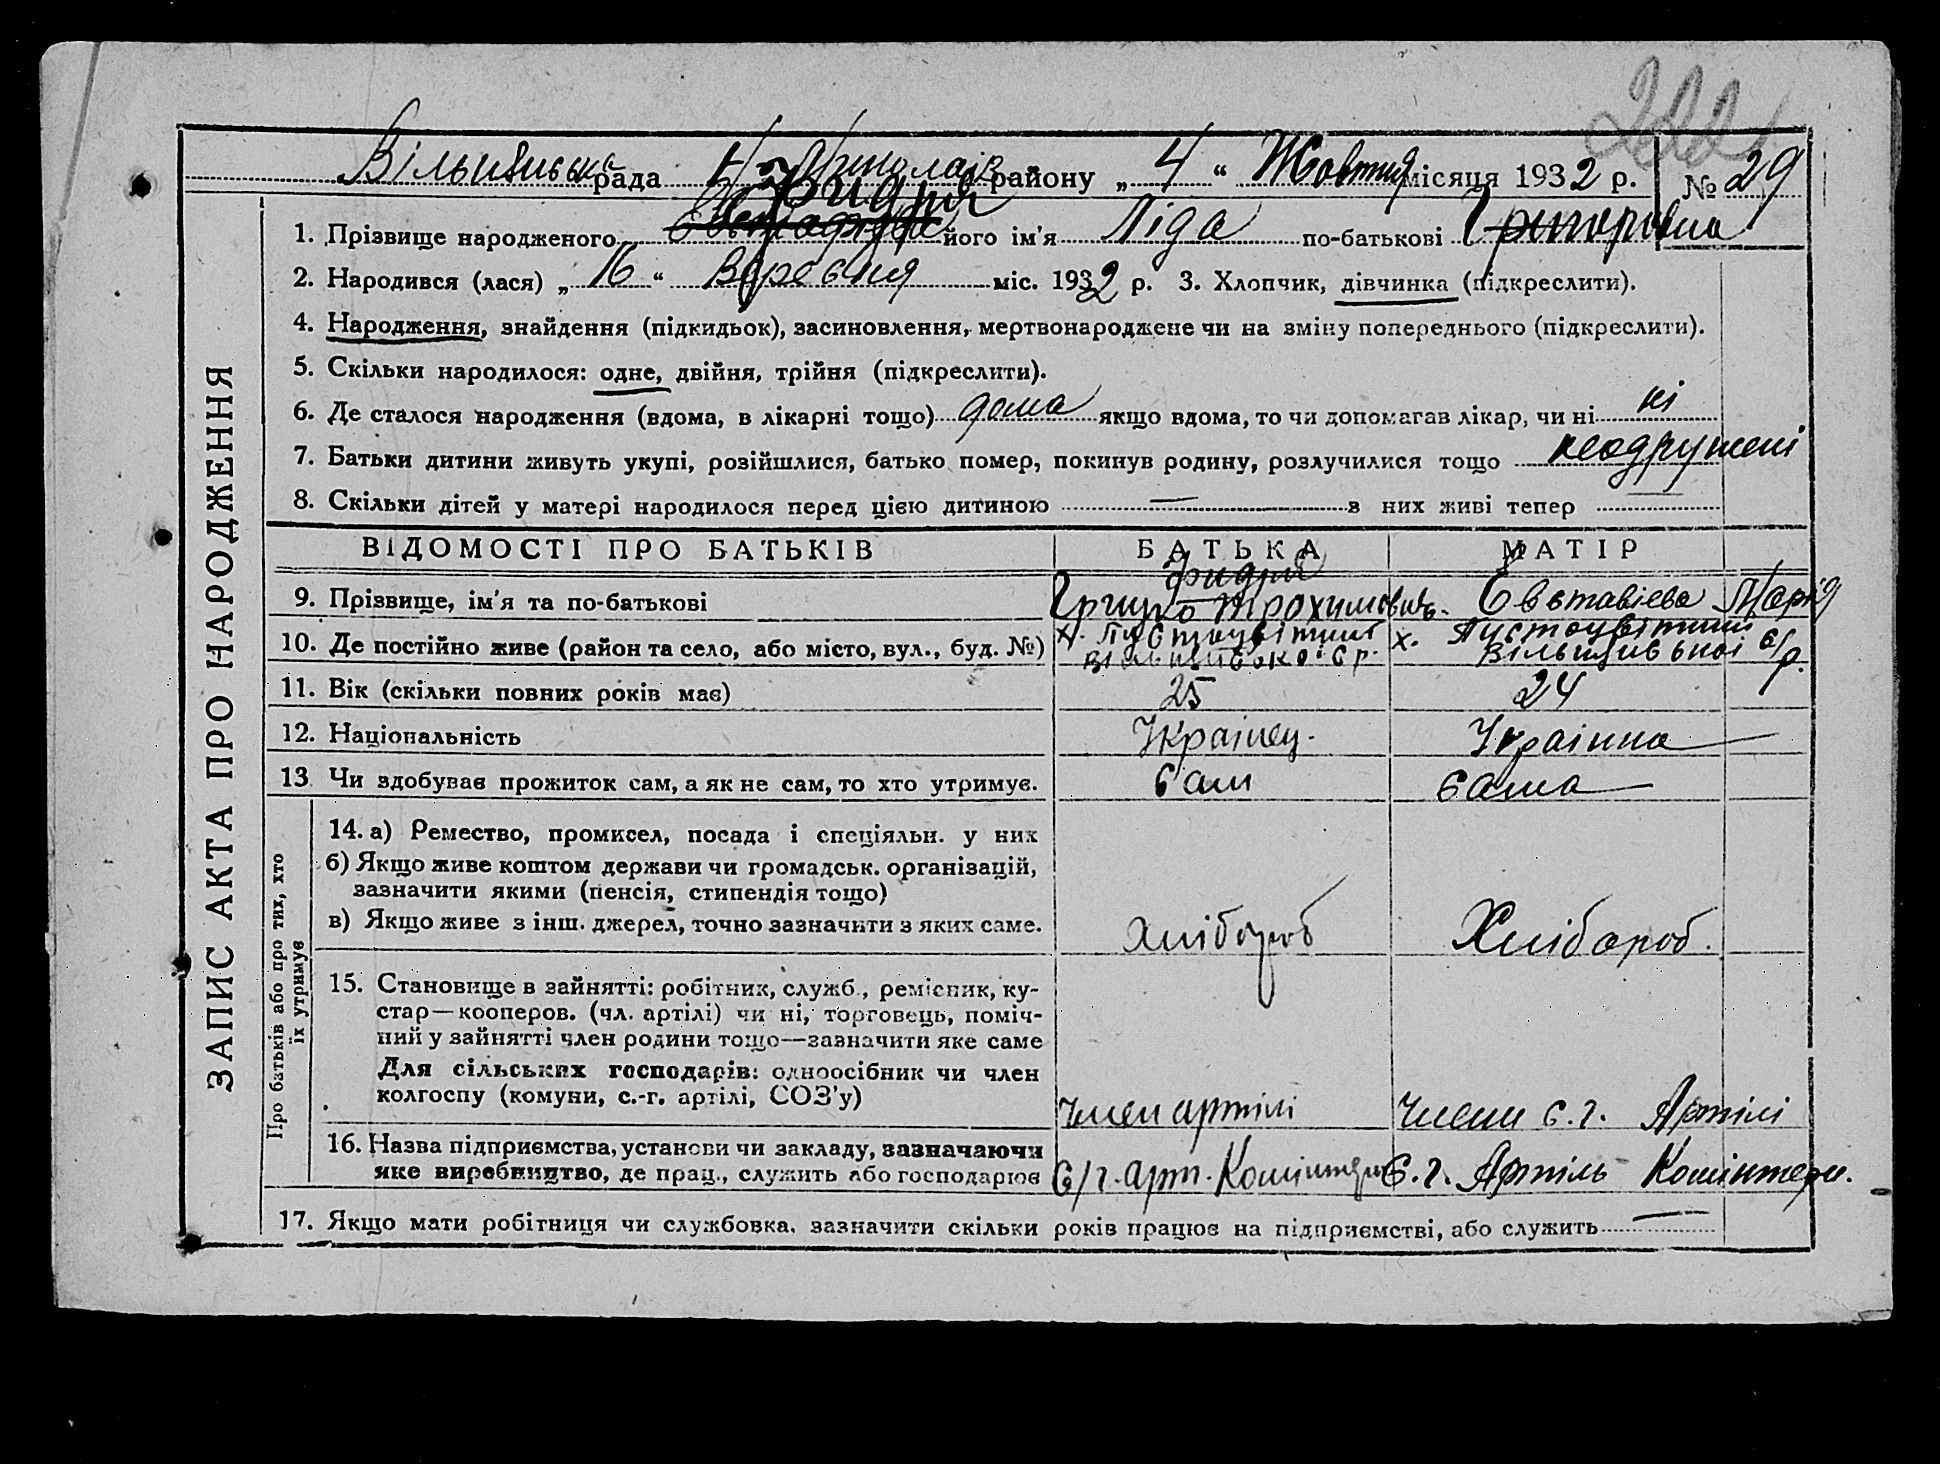 222
Вільшанська рада Миколаїв району „ 4 “ Жовтня місяця 1932 р. № 29
Фидря
1. Прізвище народженого його ім'я Ліда по-батькові Григоровна
2. Народився (лася) „ 16 “ Вересня міс. 1932 р. 3. Хлопчик, дівчинка (підкреслити).
4. Народження, знайдення (підкидьок), засиновлення, мертвонароджене чи на зміну попереднього (підкреслити).
5. Скільки народилося: одне, двійня, трійня (підкреслити).
6. Де сталося народження (вдома, в лікарні тощо) дома якщо вдома, то чи допомагав лікар, чи ні ні
7. Батьки дитини живуть укупі, розійшлися, батько помер, покинув родину, розлучилися тощо неодружені
8. Скільки дітей у матері народилося перед цією дитиною — з них живі тепер —
ВІДОМОСТІ ПРО БАТЬКІВ БАТЬКА МАТІР
Фидря
9. Прізвище, ім'я та по-батькові Грицько Трохимович. Євставієва Марія
10. Де постійно живе (район та село, або місто, вул., буд. №) х. х. с/р.
11. Вік (скільки повних років має) 25 24
12. Національність Українец. Українка
13. Чи здобуває прожиток сам, а як не сам, то хто утримує. сам сама
14. а) Ремество, промисел, посада і спеціяльн. у них
б) Якщо живе коштом держави чи громадськ. організацій,
зазначити якими (пенсія, стипендія тощо)
в) Якщо живе з інш. джерел, точно зазначити з яких саме. хлібороб Хлібороб.
15. Становище в зайнятті: робітник, служб., ремісник, ку-
стар—кооперов. (чл. артілі) чи ні, торговець, поміч-
ний у зайнятті член родини тощо—зазначити яке саме
Для сільських господарів: одноосібник чи член
колгоспу (комуни, с.-г. артілі, СОЗ'у) член артілі Члени с.г. Артілі
16. Назва підприємства, установи чи закладу, зазначаючи
яке виробництво, де прац., служить або господарює с/г. арт. Комінтерн с.г. Артіль Комінтерн.
17. Якщо мати робітниця чи службовка, зазначити скільки років працює на підприємстві, або служить —
ЗАПИС АКТА ПРО НАРОДЖЕННЯ
Про батьків або про тих, хто
їх утримує